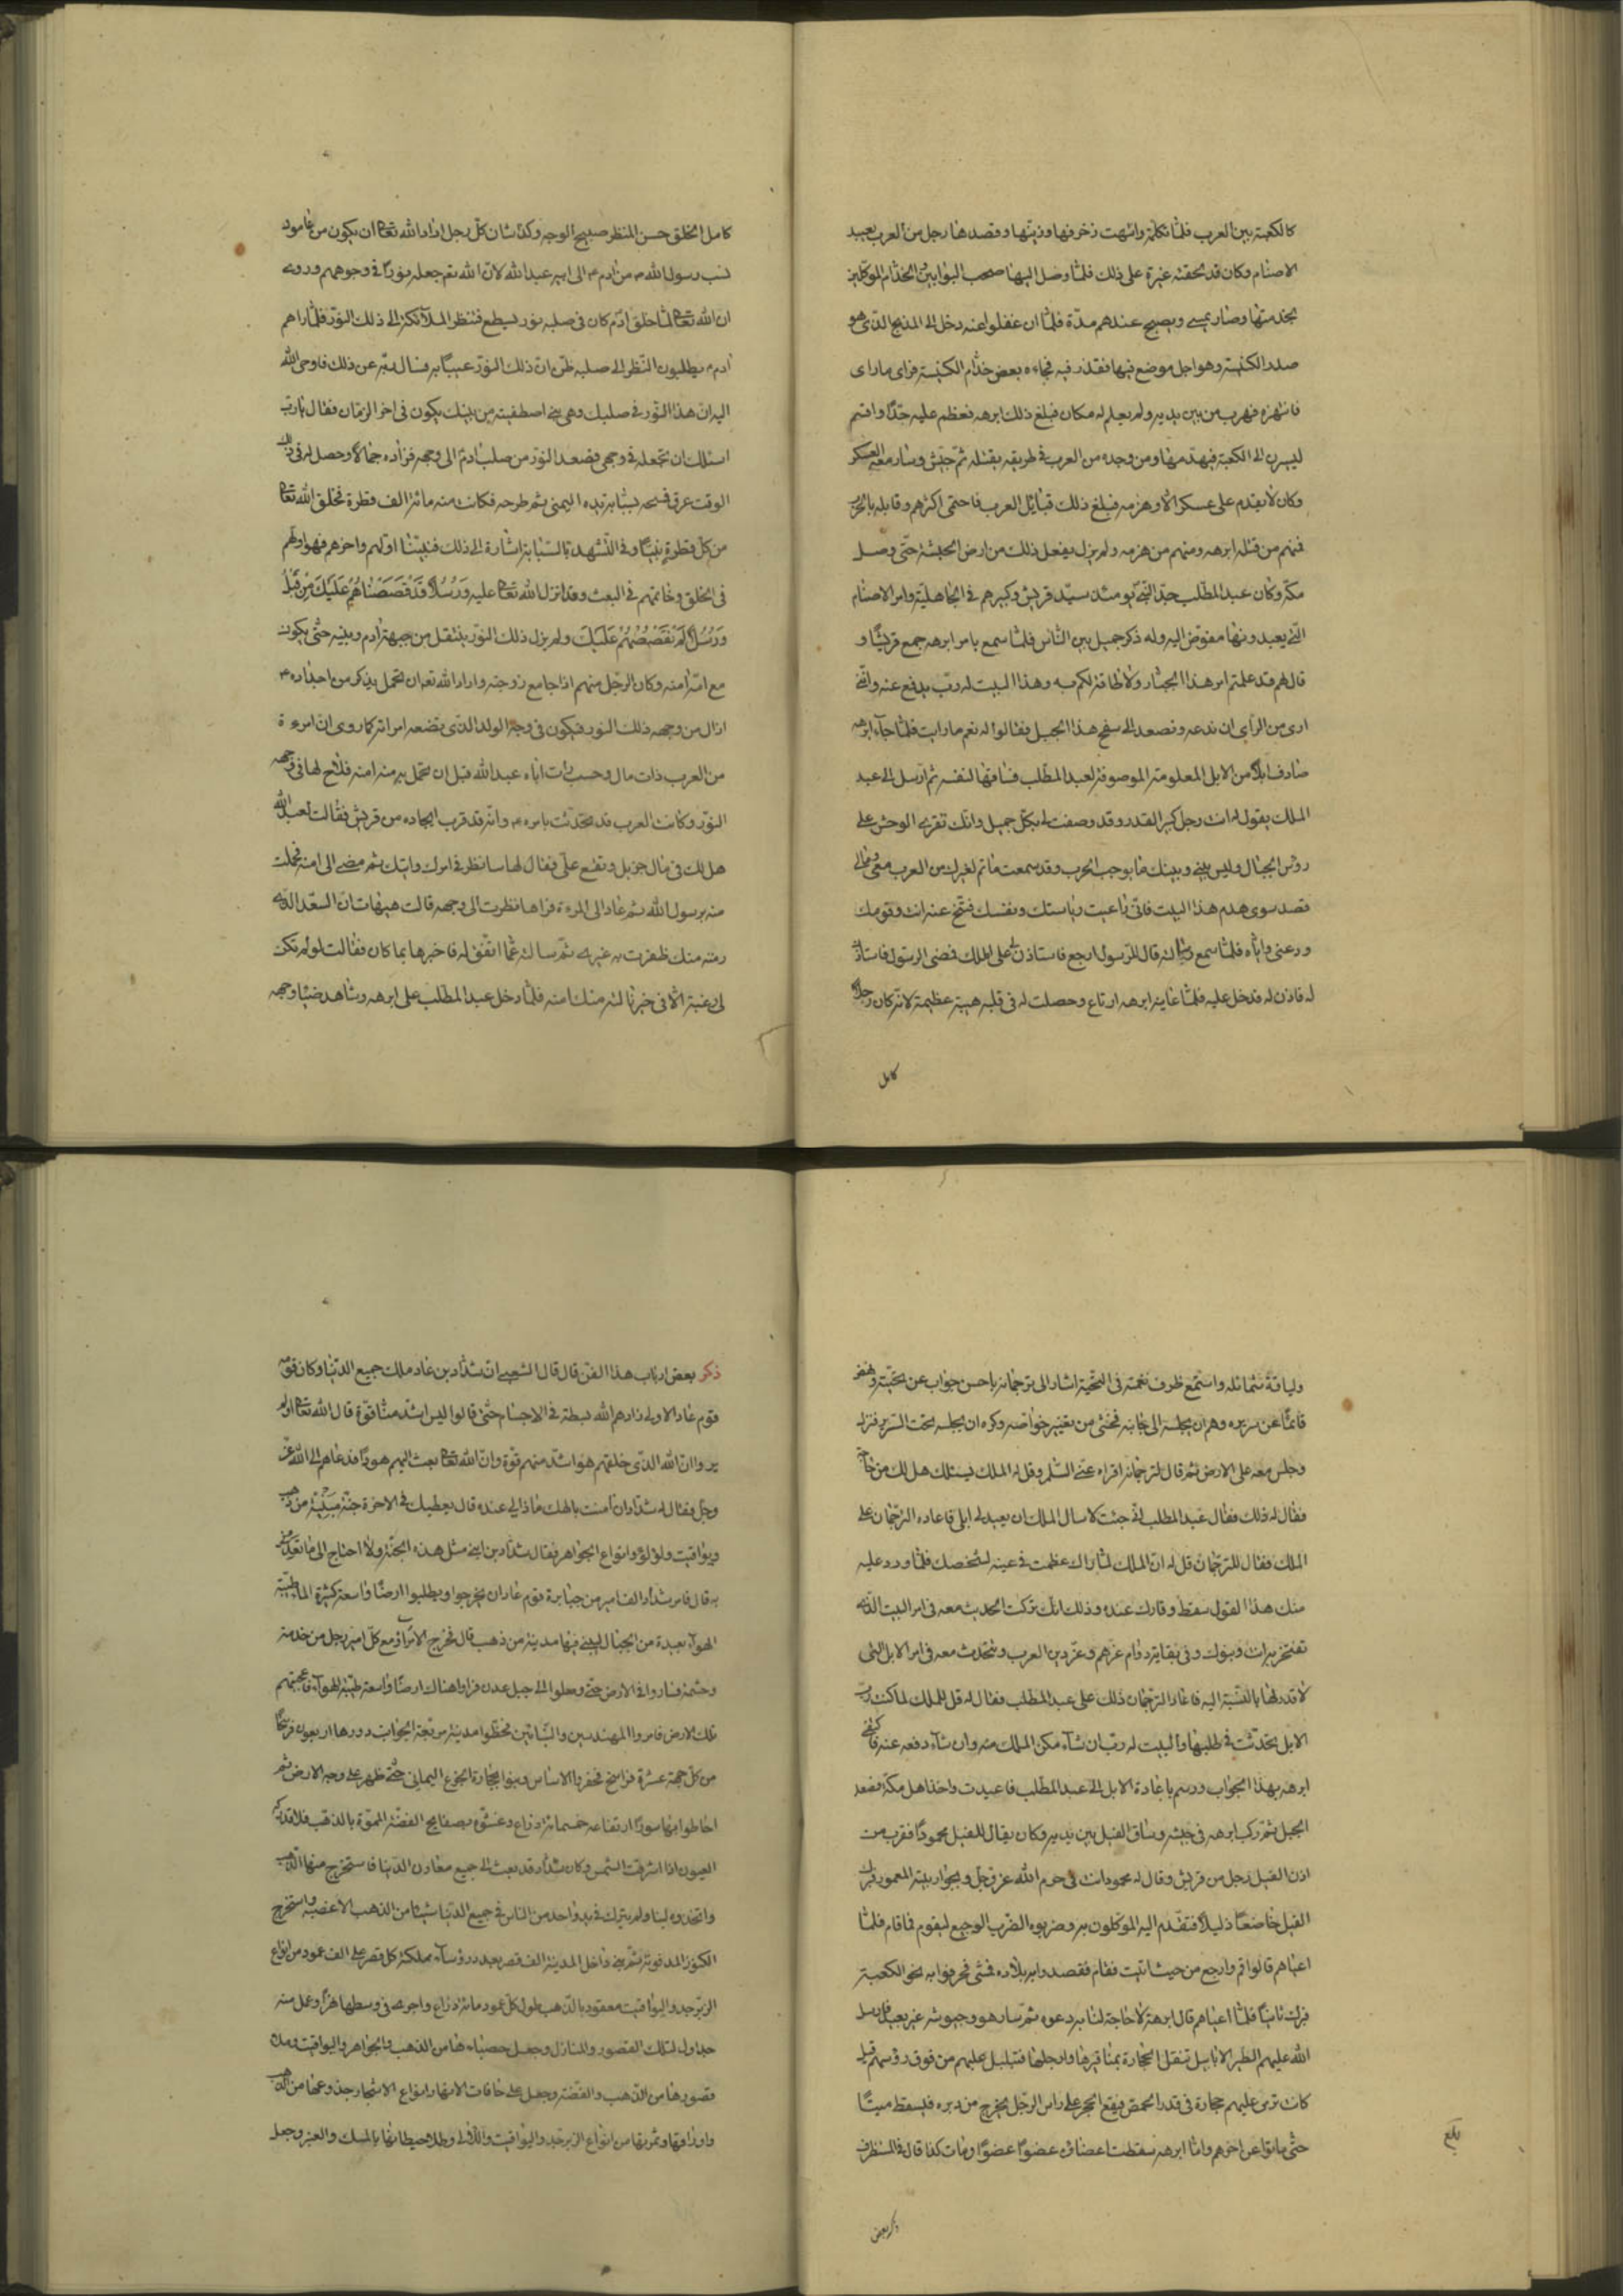 كالكعبة بين العرب فلمّا تكملة وانتهت زخرفها وزينتها وقصدها رجل من العرب يعبد
الاصنام وكان قد لحقته غيرة على ذلك فلمّا وصل اليها صحب البوابين والخدّام الموكّلين
بخدمتها وصار يمسى ويصبح عندهم مدّة فلمّا ان غفلوا عنه دخل الى المذبح الذى هو
صدر الكنيسة وهو اجل موضع فيها فقذر فيه فجاءه بعض خدّام الكنيسة فراى ماراى
فانتهزه فهرب من بين يديه ولم يعلم له مكان فبلغ ذلك ابرهه فعظم عليه جدّا واقسم
ليسرن الى الكعبة فيهدمها ومن وجده من العرب فى طريقه يقتله ثمّ جيّش وسار معه العسكر
وكان لا يقدم على عسكر الّا وهزمه فبلغ ذلك قبائل العرب فاحتمى اكثرهم وقابله بالحرب
فمنهم من قتله ابرهه ومنهم من هزمه ولم يزل يفعل ذلك من ارض الحبشة حتّى وصل
مكّة وكان عبد المطّلب جدّ النّبى يومئذ سيّد قريش وكبيرهم فى الجاهليّة وامر الاصنام
التى يعبدونها مفوّض اليه وله ذكر جميل بين النّاس فلمّا سمع بامر ابرهه جمع قريشًا و
قال لهم قد علمتم امر هذا الجبّار ولا طاقة لكم به وهذا البيت له ربّ يدفع عنه وانّى
ارى من الرّاى ان ندعه ونصعد الى سفح هذا الجبل فقالوا له نعم ما رايت فلمّا جاء ابرهه
صادف ابلًا من الابل المعلومة الموصوفة لعبد المطّلب فساقها لنفسه ثم ارسل الى عبد
الملك يقول له انت رجل كبير القدر وقد وصفت لى بكلّ جميل وانّك تقرى الوحش على
رؤس الجبال وليس بينى وبينك ما يوجب الحرب وقد سمعت ما تم لغيرك من العرب معى وما لى
قصد سوى هدم هذا البيت فان راعيت رياستك ونفسك فتنحّ عنه انت وقومك
ودعنى وايّاه فلمّا سمع رسالته قال للرّسول ارجع فاستاذن لى على الملك فمضى الرسول فاستاذن
له فاذن له فدخل عليه فلمّا عاينه ابرهه ارتاع وحصلت له فى قلبه هيبة عظيمة لانّه كان رجلًا
كامل
كامل الخلق حسن المنظر صبيح الوجه وكذا شان كلّ رجل اراد الله تعالى ان يكون من عامود
نسب رسول الله ص من آدم ع الى ابيه عبد الله لانّ الله تم جعله نورًا فى وجوههم وروى
ان الله تعالى لمّا خلق آدم كان فى صلبه نور يسطع فتنظر الملآئكة الى ذلك النّور فلمّا راهم
آدم ع يطلبون النّظر الى صلبه ظنّ ان ذلك النّور عيبًا به فسال ربّه عن ذلك فاوحى الله
اليه ان هذا النّور فى صلبك وهى نبى اصطفيته من بنيك يكون فى اخر الزمان فقال يا ربّ
اسئلك ان تجعله فى وجهى فصعد النّور من صلب آدم الى وجهه فزاده جمالًا وحصل له فى ذلك
الوقت عرق فمسحه بسبّابة يده اليمنى ثم طرحه فكانت منه مائة الف قطرة فخلق الله تعالى
من كلّ قطرة نبيّا وفى التّشهد بالسّبّابة اشارة الى ذلك فنبيّنا اوّلهم واخرهم فهو اوّلهم
فى الخلق وخاتمهم فى البعث وقد انزل الله تعالى عليه وَرُسُلًا قَدْ قَصَصْنَاهُمْ عَلَيْكَ مِنْ قَبْلُ
وَرُسُلًا لَمْ نَقْصُصْهُمْ عَلَيْكَ ولم يزل ذلك النّور ينتقل من جبهة آدم وبنيه حتّى يكون
مع امّه امنه وكان الرّجل منهم اذا جامع زوجته واراد الله تعالى ان تحمل بذكر من اجداده ص
ازال من وجهه ذلك النور فيكون فى وجه الولد الذى تضعه امراته كما روى ان امرءة
من العرب ذات مال وحسب اباء عبد الله قبل ان تحمل به منه امنه فلاح لها فى وجهه
النّور وكانت العرب قد تحدّثت بامره ص وانّه قد قرب ايجاده من قريش فقالت لعبد الله
هل لك فى مال جزيل وتقع علىّ فقال لها سانظر فى امرك واتيك ثم مضى الى امنه فحملت
منه برسول الله ثم عاد الى المرءة فراها نظرت الى وجهه قالت هيهات انّ السعد الّذى
رمته منك ظفرت به غيرى ثمّ سالته عمّا اتّفق له فاخبرها بما كان فقالت لو لم تكن
لى رغبة الّا فى خير نالته منك امنه فلمّا دخل عبد المطلب على ابرهه وشاهد ضياء وجهه
ولباقة شمائله واستمع ظرف نغمته فى التحيّة اشار الى ترجمانه باحسن جواب عن تحيّته ونهض
قائمًا عن سريره وهم ان يجلسه الى جانبه فخشى من تغيّر خواصّه وكره ان يجلسه تحت السّرير فنزل
وجلس معه على الارض ثم قال لترجمانه اقراء عنّى السّلم وقل له الملك يسئلك هل لك من حاجة
فقال له ذلك فقال عبد المطلب انّى جئت لاسال الملك ان يعيد لى ابلى فاعاده الترجمان على
الملك فقال للترجمان قل له انّ الملك لمّا راك عظمت فى عينه لشخصك فلمّا ورد عليه
منك هذا القول سقط وقارك عنده وذلك انّك تركت الحديث معه فى امر البيت الّذى
تفتخر به انت وبنوك وفى بقايه دوام عزّهم وعزّ دين العرب وتتحدّث معه فى امر الابل التى
لا قدر لها بالنّسبة اليه فاعاد الترجمان ذلك على عبد المطلب فقال له قل للملك لما كنت ربّ
الابل تحدّثت فى طلبها والبيت له ربّ ان شآء مكن الملك منه وان شآء دفعه عنه فاكتفى
ابرهه بهذا الجواب ورسم باعادة الابل الى عبد المطلب فاعيدت واخذ اهل مكة فصعد
الجبل ثمّ ركب ابرهه فى جيشه وساق الفيل بين يديه وكان يقال للفيل محمودًا فقرب من
اذن الفيل رجل من قريش وقال له محمود انت فى حرم الله عزّ وجلّ وبجوار بيته المعمور فبرك
الفيل خاضعًا ذليلًا فتقدّم اليه الموكلون به وضربوه الضّرب الوجيع ليقوم فما قام فلمّا
اعياهم قالوا قم وارجع من حيث اتيت فقام فقصدوا به بلاده فمشى فحرفوا به نحو الكعبة
فبرك ثانيًا فلمّا اعياهم قال ابرهة لا حاجة لنا به دعوه ثمّ سار هو وجيوشه غير بعيد فارسل
الله عليهم الطير الابابيل تنقل الحجارة بمناقيرها وارجلها فتبلبل عليهم من فوق رؤسهم قيل
كانت ترمى عليهم حجارة فى قدر الحمص فيقع الحجر على راس الرّجل يخرج من دبره فيسقط ميتًا
حتّى ماتوا عن اخرهم وامّا ابرهه سقطت اعضاؤه عضوًا عضوًا ومات كذا قال فى المستظرف
بلغ
ذكر بعض
ذكر بعض ارباب هذا الفن قال قال الشعبى ان شدّاد بن عاد ملك جميع الدّنيا وكان قومه
قوم عاد الاولى زادهم الله بسطة فى الاجسام حتّى قالوا ليس اشد منّا قوّة قال الله تعالى اولم
يروا ان الله الذى خلقهم هو اشدّ منهم قوّة وانّ الله تعالى بعث اليهم هودًا فدعاهم الى الله عزّ
وجلّ فقال له شدّاد ان آمنت بالهك ماذا لى عنده قال يعطيك فى الاخرة جنّة مبنيّة من ذهب
ويواقيت ولؤلؤ وانواع الجواهر فقال شدّاد بن ابنى مثل هذه الجنّة ولا احتاج الى ما تعدنى
به قال فامر شدّاد الف امير من جبابرة قوم عاد ان يخرجوا ويطلبوا ارضًا واسعة كثيرة الماء طيّبة
الهوآء بعيدة من الجبال ليبنى فيها مدينة من ذهب قال فخرج الامرآء ومع كلّ امير رجل من خدمته
وحشمة فساروا فى الارض حتّى وصلوا الى جبل عدن فراوا هناك ارضًا واسعة طيّبة الهوآء فاعجبتهم
تلك الارض فامروا المهندسين والبنّائين فخطّوا مدينة مربّعة الجوانب دورها اربعون فرسخًا
من كلّ جهة عشرة فراسخ فحفروا الاساس وبنوا بحجارة الجزع اليمانى حتّى ظهر على وجه الارض ثم
احاطوا بها سورًا ارتفاعه خمسمائة ذراع وغشّوه بصفايح الفضّة المموّهة بالذهب فلا تدركه
العيون اذا اشرقت الشمس وكان شدّاد قد بعث الى جميع معادن الدّنيا فاستخرج منها الذّهب
واتخذوه لبنا ولم يترك فى يد واحد من الناس فى جميع الدّنيا شيئا من الذهب الّا غصبه واستخرج
الكنوز المدفونة ثمّ بنى داخل المدينة الف قصر بعدد رؤسآء مملكته كل قصر على الف عمود من انواع
الزبرجد واليواقيت معقود بالذّهب طول كلّ عمود مائة ذراع واجرى فى وسطها نهرًا وعمل منه
جداول لتلك القصور والمنازل وجعل حصباءها من الذهب والجواهر واليواقيت وملاء
قصورها من الذّهب والفضّة وجعل على حافات الانهار انواع الاشجار جذوعها من الذهب
واوراقها وثمرتها من انواع الزبرجد واليواقيت واللّالى وطلا حيطانها بالمسك والعنبر وجعل